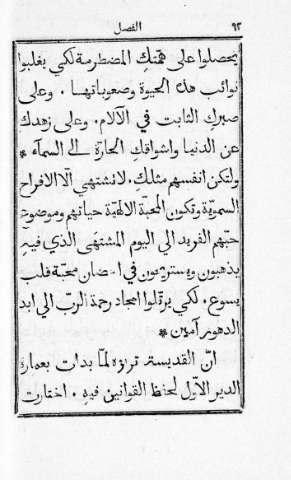 ٩٢ الفصل
يحصلوا على همتكِ المضطرمة لكي يغلبوا
نوائب هذه الحيوة وصعوباتها . وعلى
صبركِ الثابت في الآلام . وعلى زهدك
عن الدنيا واشواقكِ الحارة الى السمآء *
ولتكن انفسهم مثلكِ . لا تشتهي الّا الافراح
السمويّة وتكون المحبّة الالهيّة حياتهم وموضوع
حبّهم الفريد الى اليوم المشتهَى الذي فيهِ
يذهبون ويستريحون في احضان محبّة قلب
يسوع . لكي يرتّلوا امجاد رحمة الرب الى ابد
الدهور آمين *
انّ القديسة ترازه لمّا بدات بعمارة
الدير الاوّل لحفظ القوانين فيهِ . اختارت